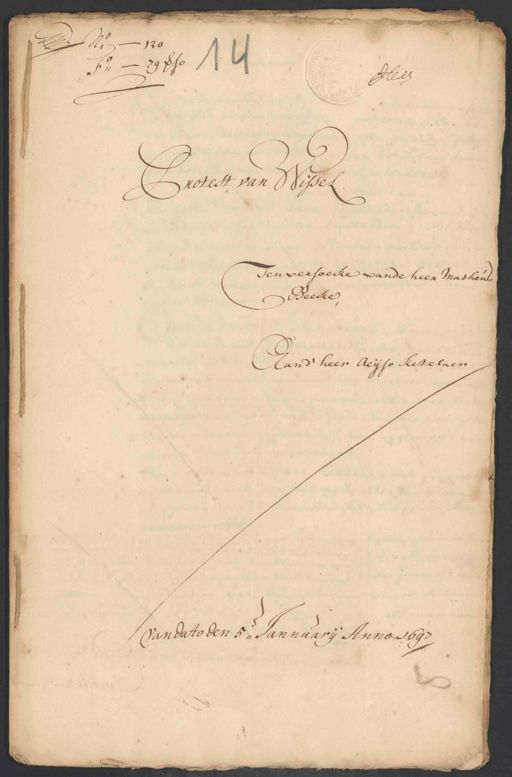 N.o — 120
F.o — 79 vso
14
Protest van Wissel
Ten versoecke vande heer Matheus
Beecke,
Aand heer Reijso Ketelaer
Van dato den 5.en Jannuarij Anno 1697